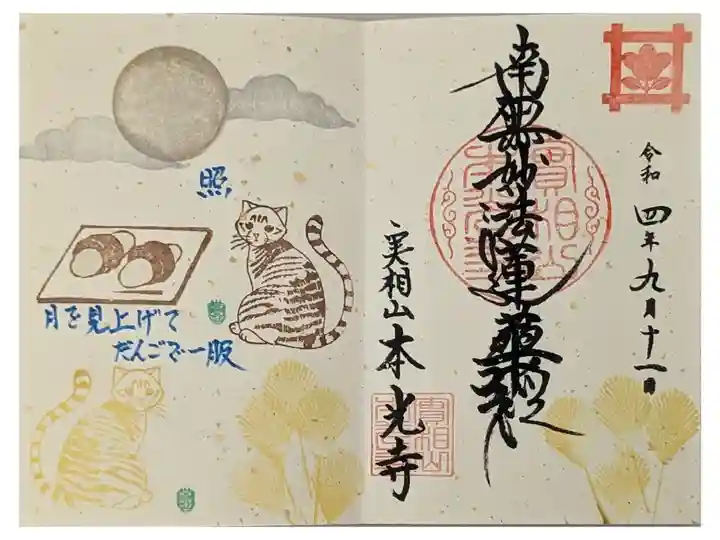 令和四年九月十一日
南無妙法蓮華経
実相山本光寺
照
月を見上げて
だんごで一服